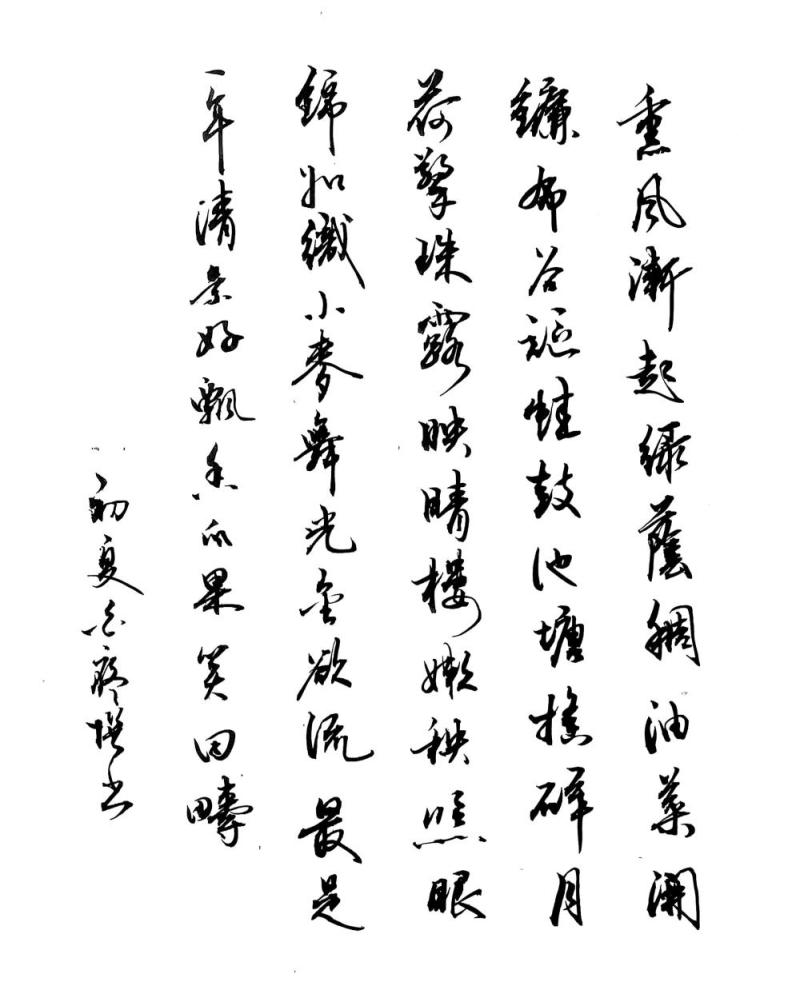 熏风渐起绿蔭稠油菜瀾
鐮布谷謳蛙鼓池塘搖碎月
荷擎珠露映晴楼嫩秧照眼
錦如織小麥舞光金欲流最是
一年清景好飄香瓜果笑田疇
初夏 撰书